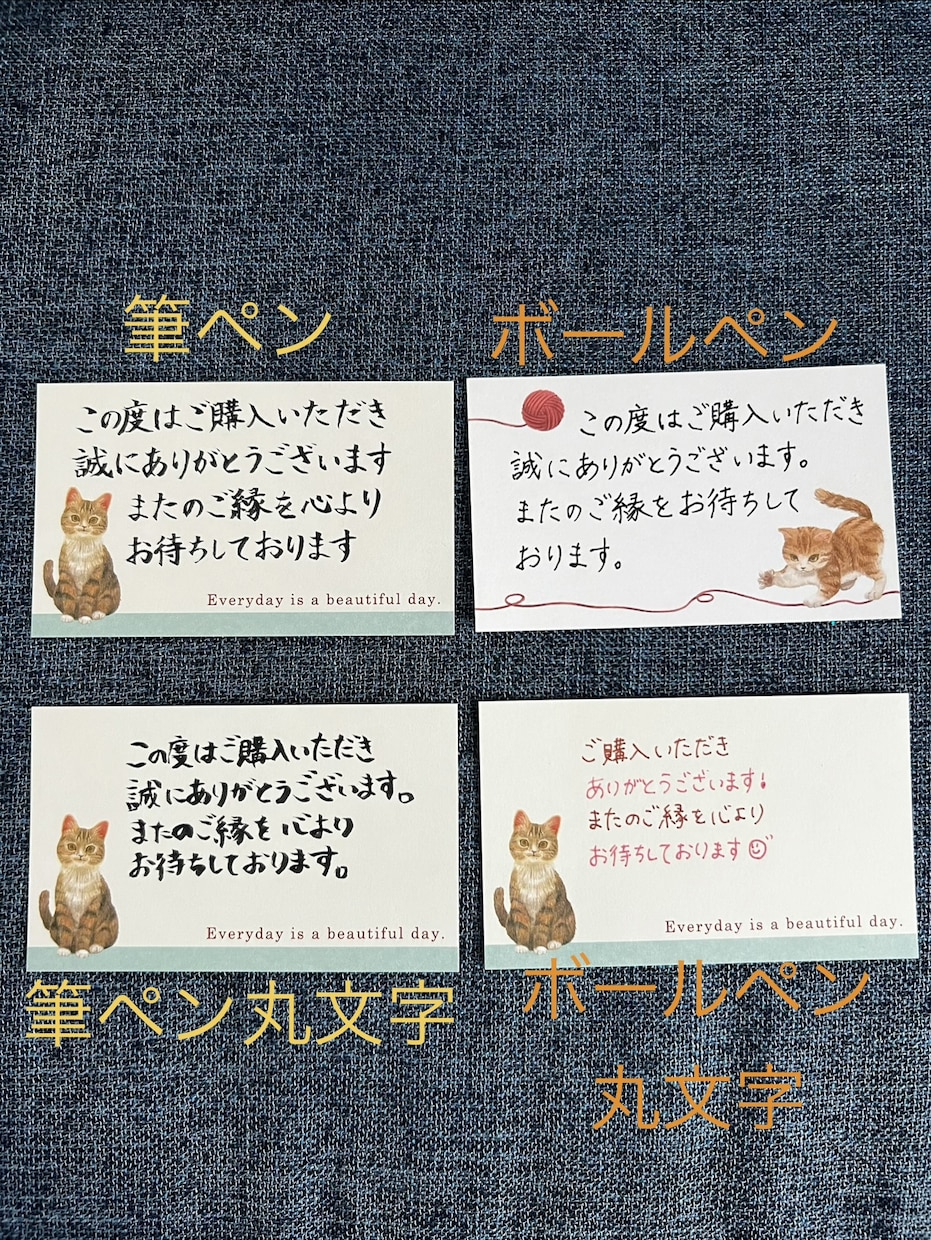 筆ペン
ボールペン
この度はご購入いただき
誠にありがとうございます
またのご縁を心より
お待ちしております
Everyday is a beautiful day.
この度はご購入いただき
誠にありがとうございます。
またのご縁をお待ちして
おります。
この度はご購入いただき
誠にありがとうございます。
またのご縁を心より
お待ちしております。
Everyday is a beautiful day.
ご購入いただき
ありがとうございます!
またのご縁を心より
お待ちしております☺
Everyday is a beautiful day.
筆ペン丸文字
ボールペン
丸文字